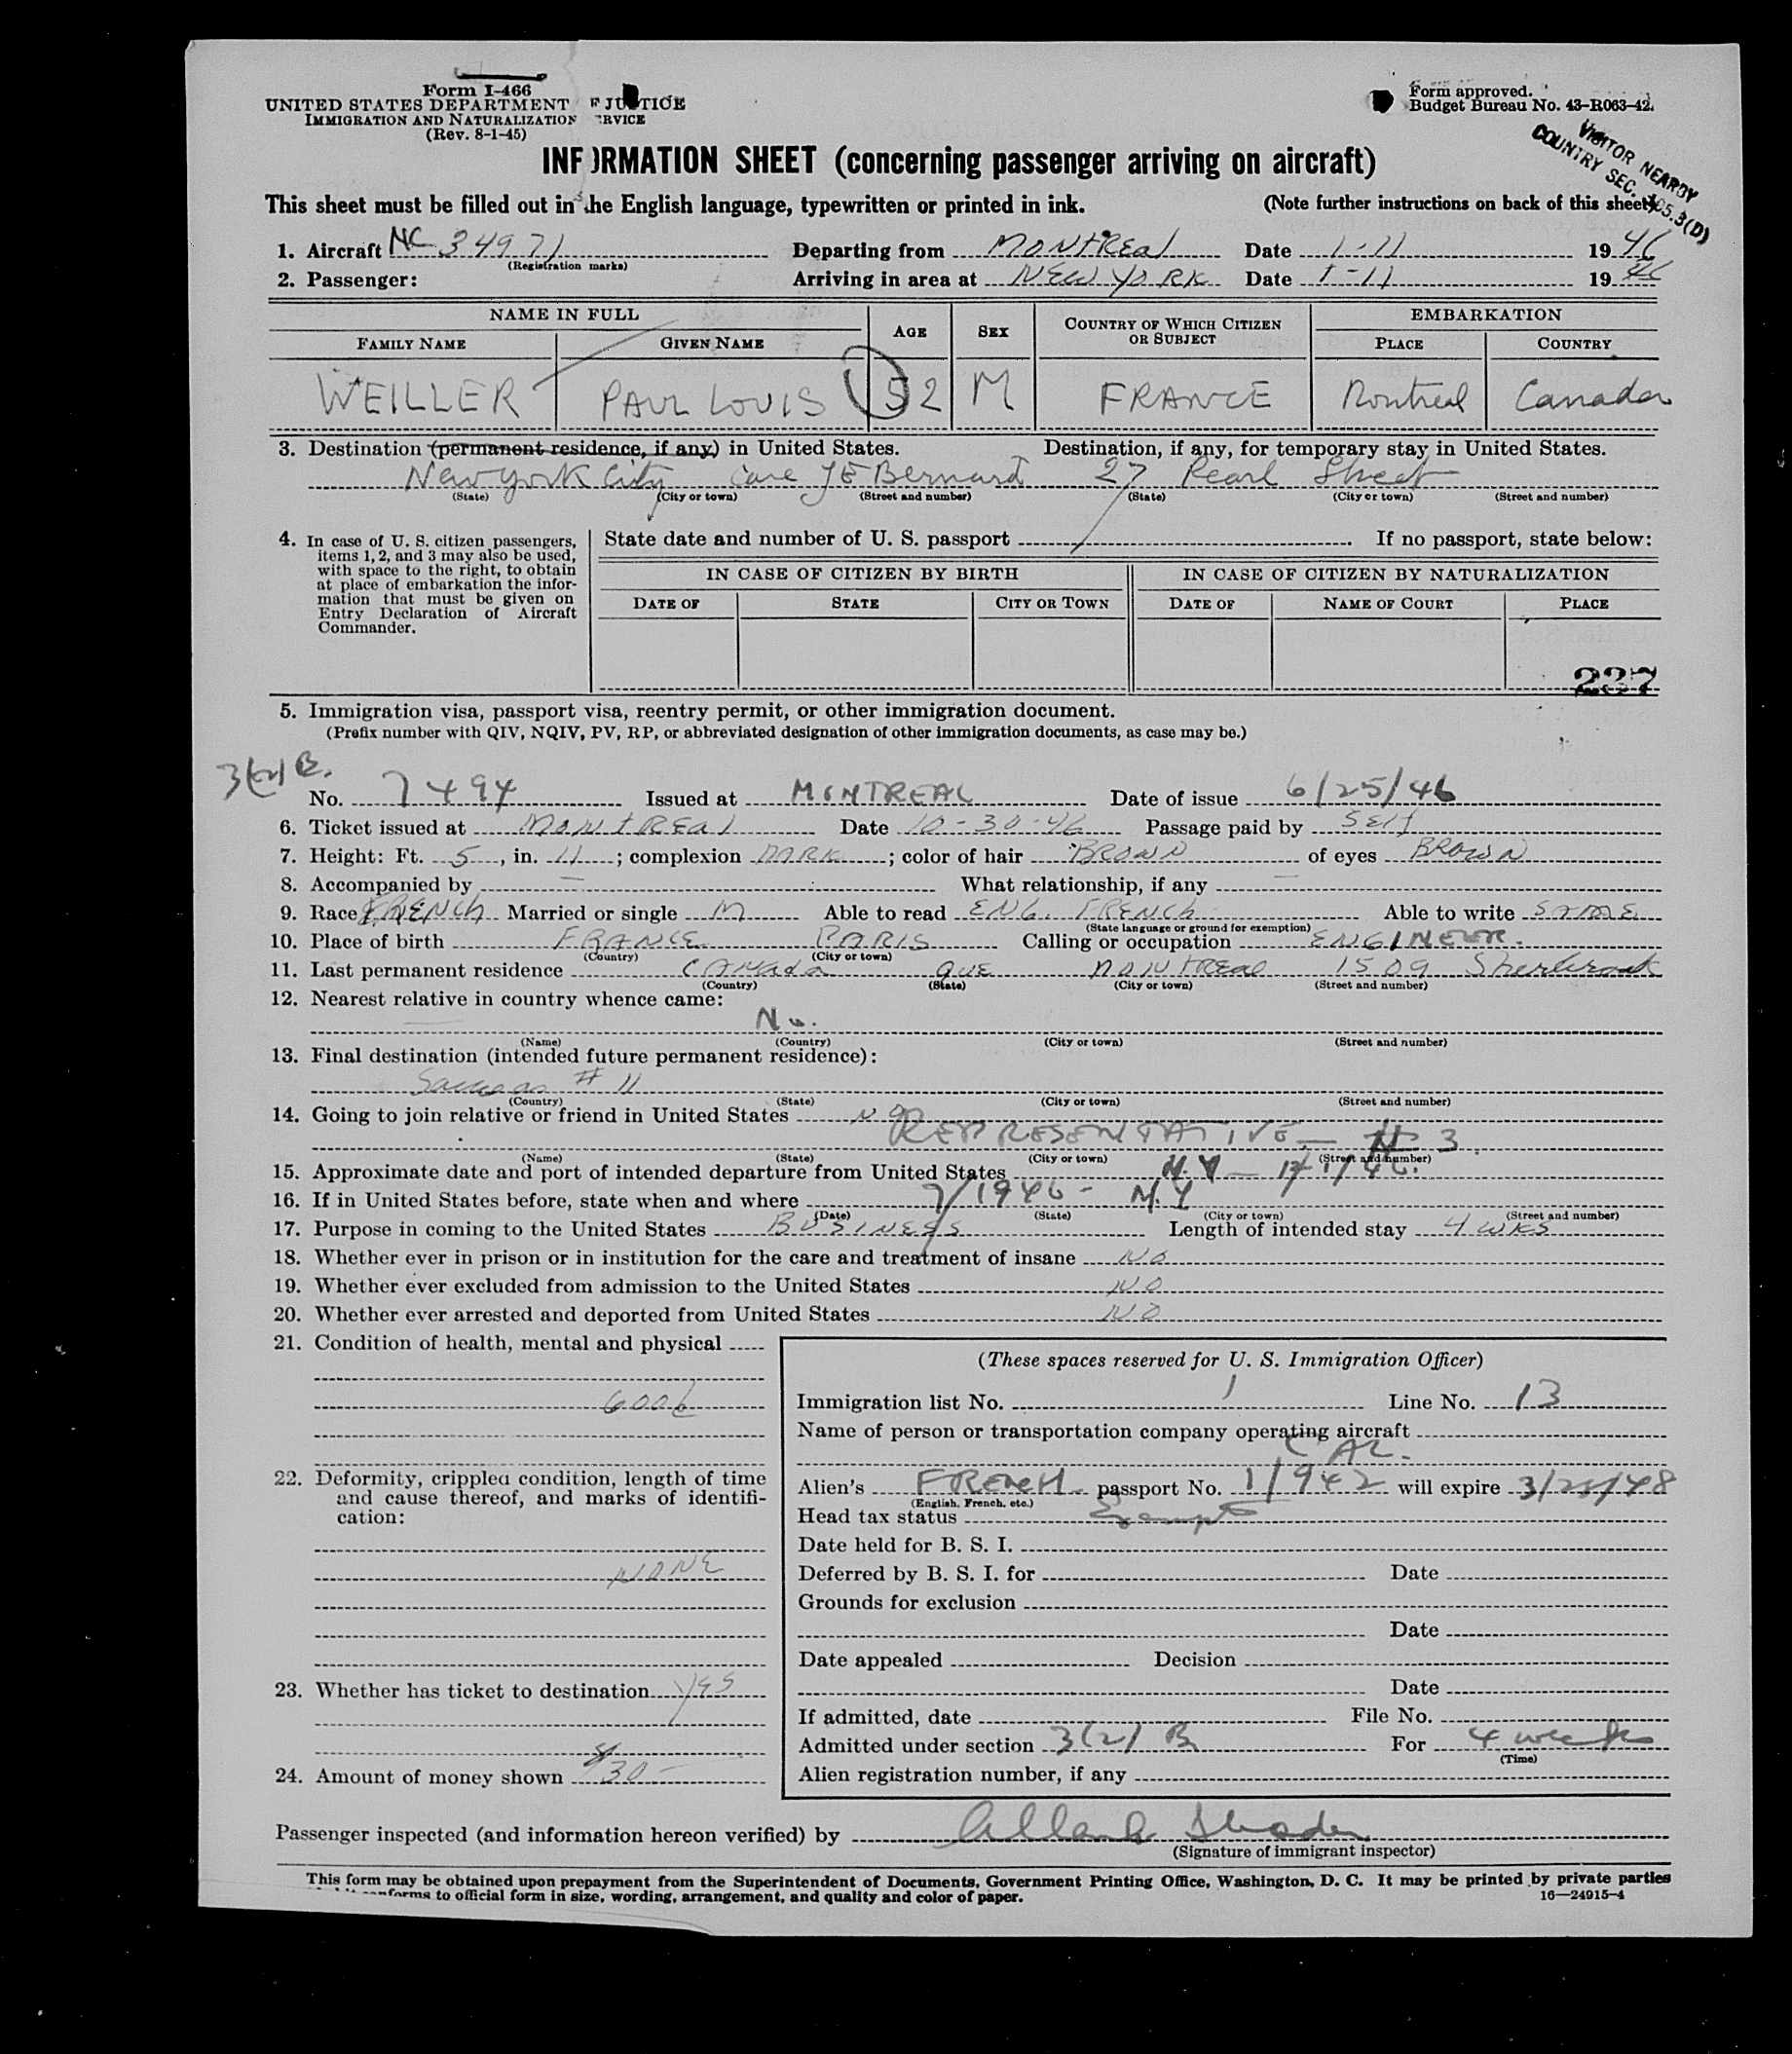 Form I-466
UNITED STATES DEPARTMENT F JUSTICE
IMMIGRATION AND NATURALIZATION ERVICE
(Rev. 8-1-45)
Form approved.
Budget Bureau No. 43-R063-42.
VISITOR NEARBY
COUNTRY SEC.
INF RMATION SHEET (concerning passenger arriving on aircraft)
This sheet must be filled out in the English language, typewritten or printed in ink. (Note further instructions on back of this sheet)
1. Aircraft NC 34971 Departing from MONTREAL Date 1-11 1946
(Registration marks)
2. Passenger: Arriving in area at NEW YORK Date 1-11 1946
NAME IN FULL AGE SEX COUNTRY OF WHICH CITIZEN OR SUBJECT EMBARKATION
FAMILY NAME GIVEN NAME PLACE COUNTRY
WEILLER PAUL LOUIS 52 M FRANCE Montreal Canada
3. Destination (permanent residence, if any) in United States. Destination, if any, for temporary stay in United States.
New York City care J E Bernard 27 Pearl Street
(State) (City or town) (Street and number) (State) (City or town) (Street and number)
4. In case of U. S. citizen passengers,
items 1, 2, and 3 may also be used,
with space to the right, to obtain
at place of embarkation the infor-
mation that must be given on
Entry Declaration of Aircraft
Commander.
State date and number of U. S. passport If no passport, state below:
IN CASE OF CITIZEN BY BIRTH IN CASE OF CITIZEN BY NATURALIZATION
DATE OF STATE CITY OR TOWN DATE OF NAME OF COURT PLACE
237
5. Immigration visa, passport visa, reentry permit, or other immigration document.
(Prefix number with QIV, NQIV, PV, RP, or abbreviated designation of other immigration documents, as case may be.)
3(2) B.
No. 7494 Issued at MONTREAL Date of issue 6/25/46
6. Ticket issued at MONTREAL Date 10-30-46 Passage paid by Self
7. Height: Ft. 5, in. 11; complexion DARK; color of hair BROWN of eyes BROWN
8. Accompanied by — What relationship, if any —
9. Race FRENCH Married or single M Able to read ENG. FRENCH Able to write SAME
(State language or ground for exemption)
10. Place of birth FRANCE PARIS Calling or occupation ENGINEER.
(Country) (City or town)
11. Last permanent residence CANADA QUE MONTREAL 1509 Sherbrook
(Country) (State) (City or town) (Street and number)
12. Nearest relative in country whence came:
No.
(Name) (Country) (City or town) (Street and number)
13. Final destination (intended future permanent residence):
Same as # 11
(Country) (State) (City or town) (Street and number)
14. Going to join relative or friend in United States NO
REPRESENTATIVE — # 3
(Name) (State) (City or town) (Street and number)
15. Approximate date and port of intended departure from United States N.Y — 12/1/46.
16. If in United States before, state when and where 7/1946 - N.Y
(Date) (State) (City or town) (Street and number)
17. Purpose in coming to the United States BUSINESS Length of intended stay 4 WKS
18. Whether ever in prison or in institution for the care and treatment of insane NO
19. Whether ever excluded from admission to the United States NO
20. Whether ever arrested and deported from United States NO
21. Condition of health, mental and physical
GOOD
22. Deformity, crippled condition, length of time
and cause thereof, and marks of identifi-
cation:
NONE
23. Whether has ticket to destination YES
24. Amount of money shown $30-
(These spaces reserved for U. S. Immigration Officer)
Immigration list No. 1 Line No. 13
Name of person or transportation company operating aircraft
CAL.
Alien's FRENCH passport No. 1/942 will expire 3/25/48
(English, French, etc.)
Head tax status Exempt
Date held for B. S. I.
Deferred by B. S. I. for Date
Grounds for exclusion
Date
Date appealed Decision
Date
If admitted, date File No.
Admitted under section 3(2) B For 4 weeks
(Time)
Alien registration number, if any
Passenger inspected (and information hereon verified) by
(Signature of immigrant inspector)
This form may be obtained upon prepayment from the Superintendent of Documents, Government Printing Office, Washington, D. C. It may be printed by private parties
conforms to official form in size, wording, arrangement, and quality and color of paper.
16—24915-4